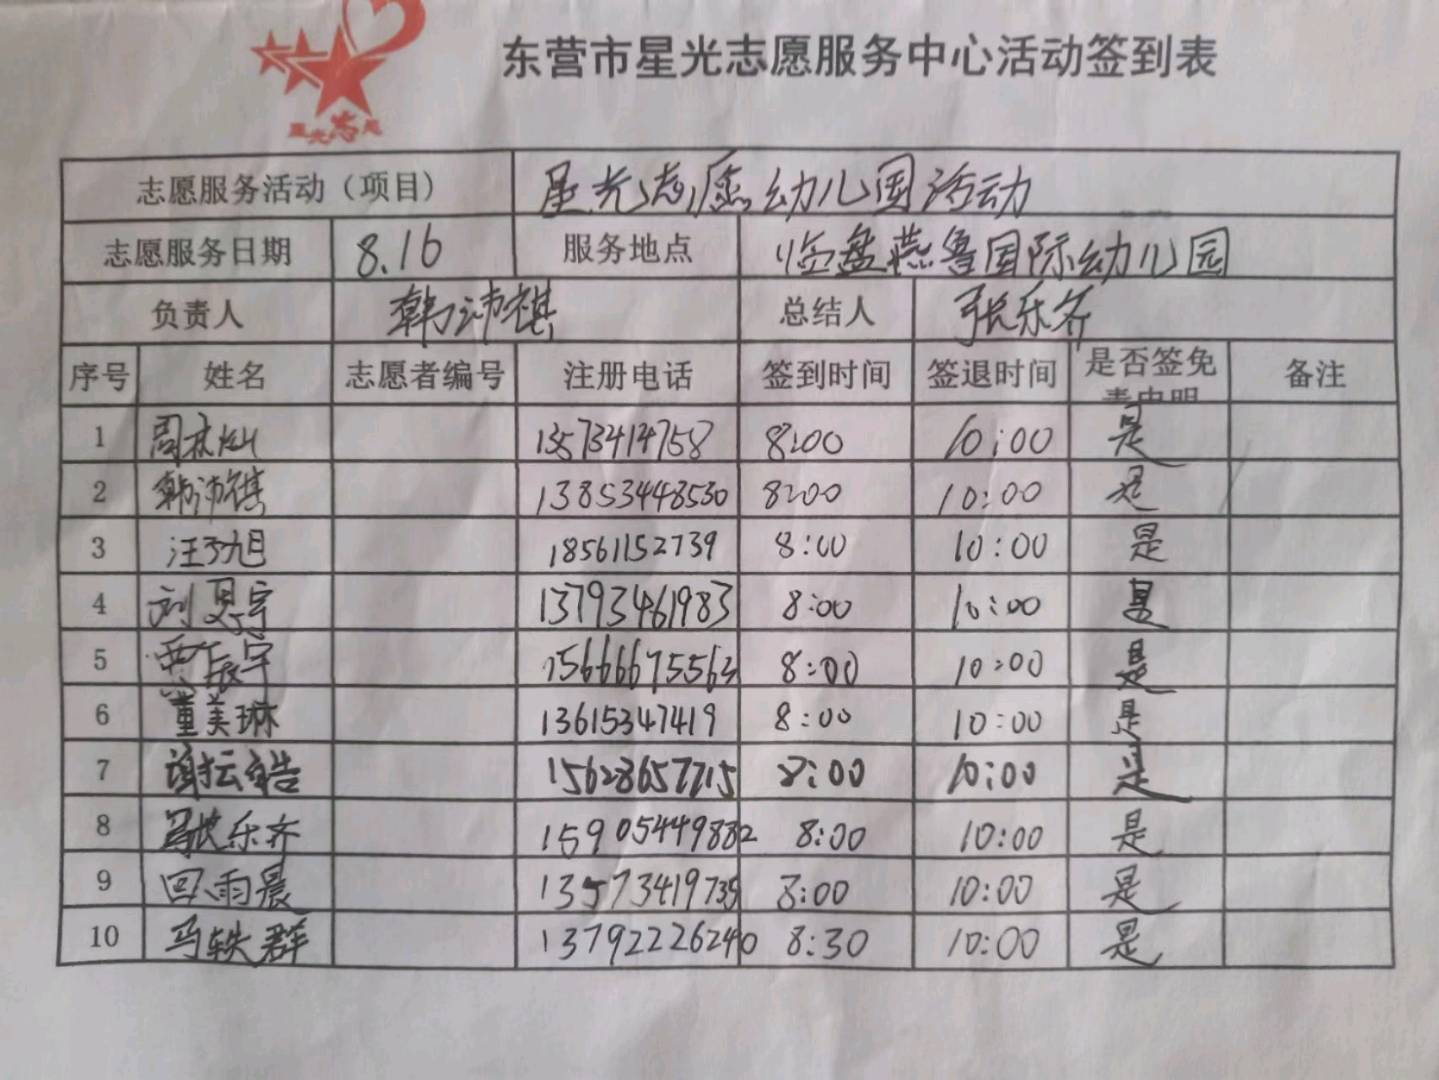 星光志愿
东营市星光志愿服务中心活动签到表
志愿服务活动（项目） 星光志愿幼儿园活动
志愿服务日期 8.16 服务地点 临盘燕鲁国际幼儿园
负责人 韩沛祺 总结人 张乐齐
序号 姓名 志愿者编号 注册电话 签到时间 签退时间 是否签免责申明 备注
1 13573414758 8:00 10:00 是
2 韩沛祺 13853448530 8:00 10:00 是
3 汪子旭 18561152739 8:00 10:00 是
4 刘恩宇 13793461983 8:00 10:00 是
5 贾辰宇 15666675563 8:00 10:00 是
6 董美琳 13615347419 8:00 10:00 是
7 15628657715 8:00 10:00 是
8 张乐齐 15905449882 8:00 10:00 是
9 回雨晨 13573419735 8:00 10:00 是
10 马轶群 13792226240 8:30 10:00 是